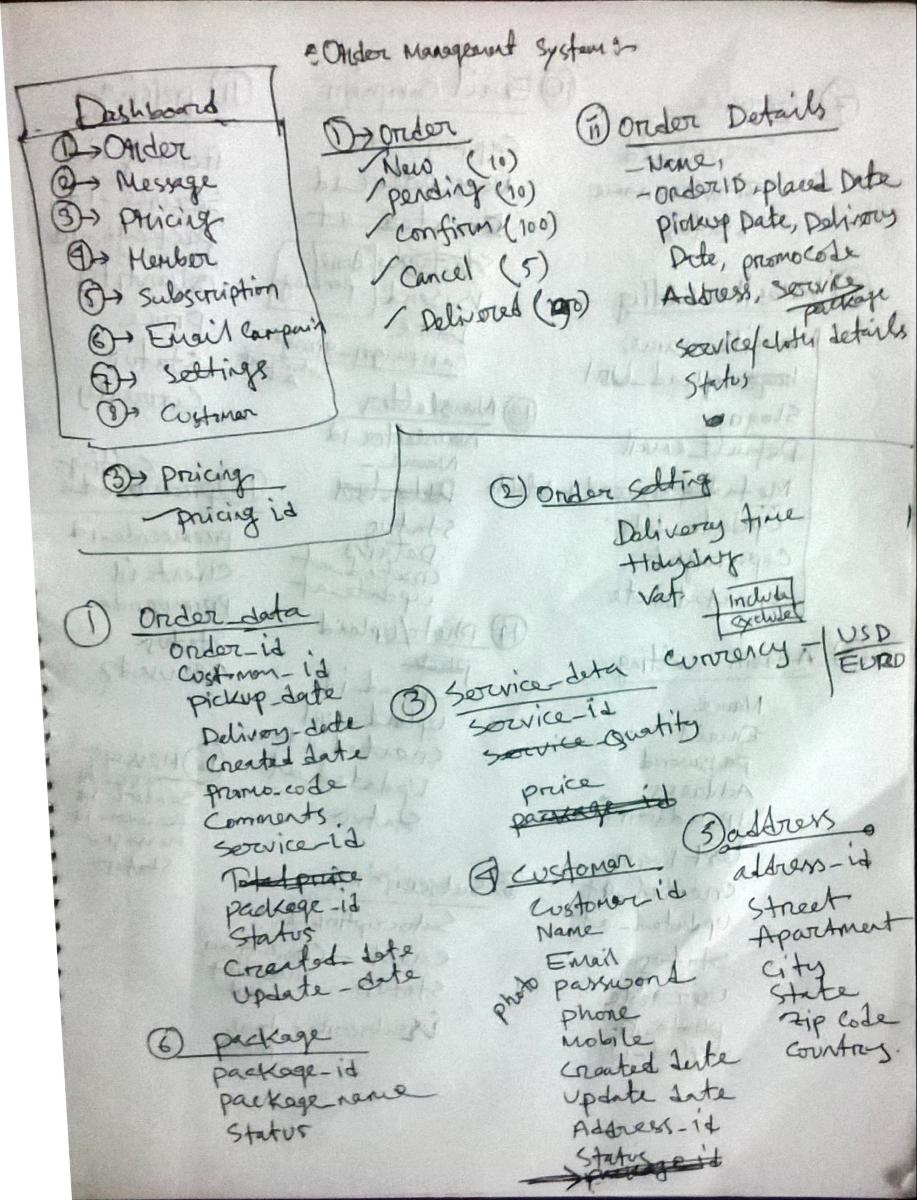 Order Management System :-
Dashboard
① → Order
② → Message
③ → Pricing
④ → Member
⑤ → Subscription
⑥ → Email Campain
⑦ → Settings
⑧ → Customer
① → Order
New (10)
pending (10)
Confirm (100)
Cancel (5)
Delivered
ii Order Details
- Name,
- OrderID, placed Date
Pickup Date, Delivery
Date, promocode
Address, Service
package
Service/cloth details
Status
③ → Pricing
pricing id
② Order Setting
Delivery time
Holyday
Vat. Include
Exclude
Currency - USD
EURO
① Order_data
Order-id
Customer_id
pickup_date
Delivery-date
Created date
promo-code
Comments
Service-id
Total price
package-id
Status
Created_date
Update_date
③ Service_data
Service-id
Service-Quantity
price
package-id
④ Customer
Customer_id
Name
Email
photo password
phone
Mobile
Created date
Update date
Address-id
Status
⑤ address
address-id
Street
Apartment
City
State
Zip Code
Country.
⑥ package
package-id
package_name
Status